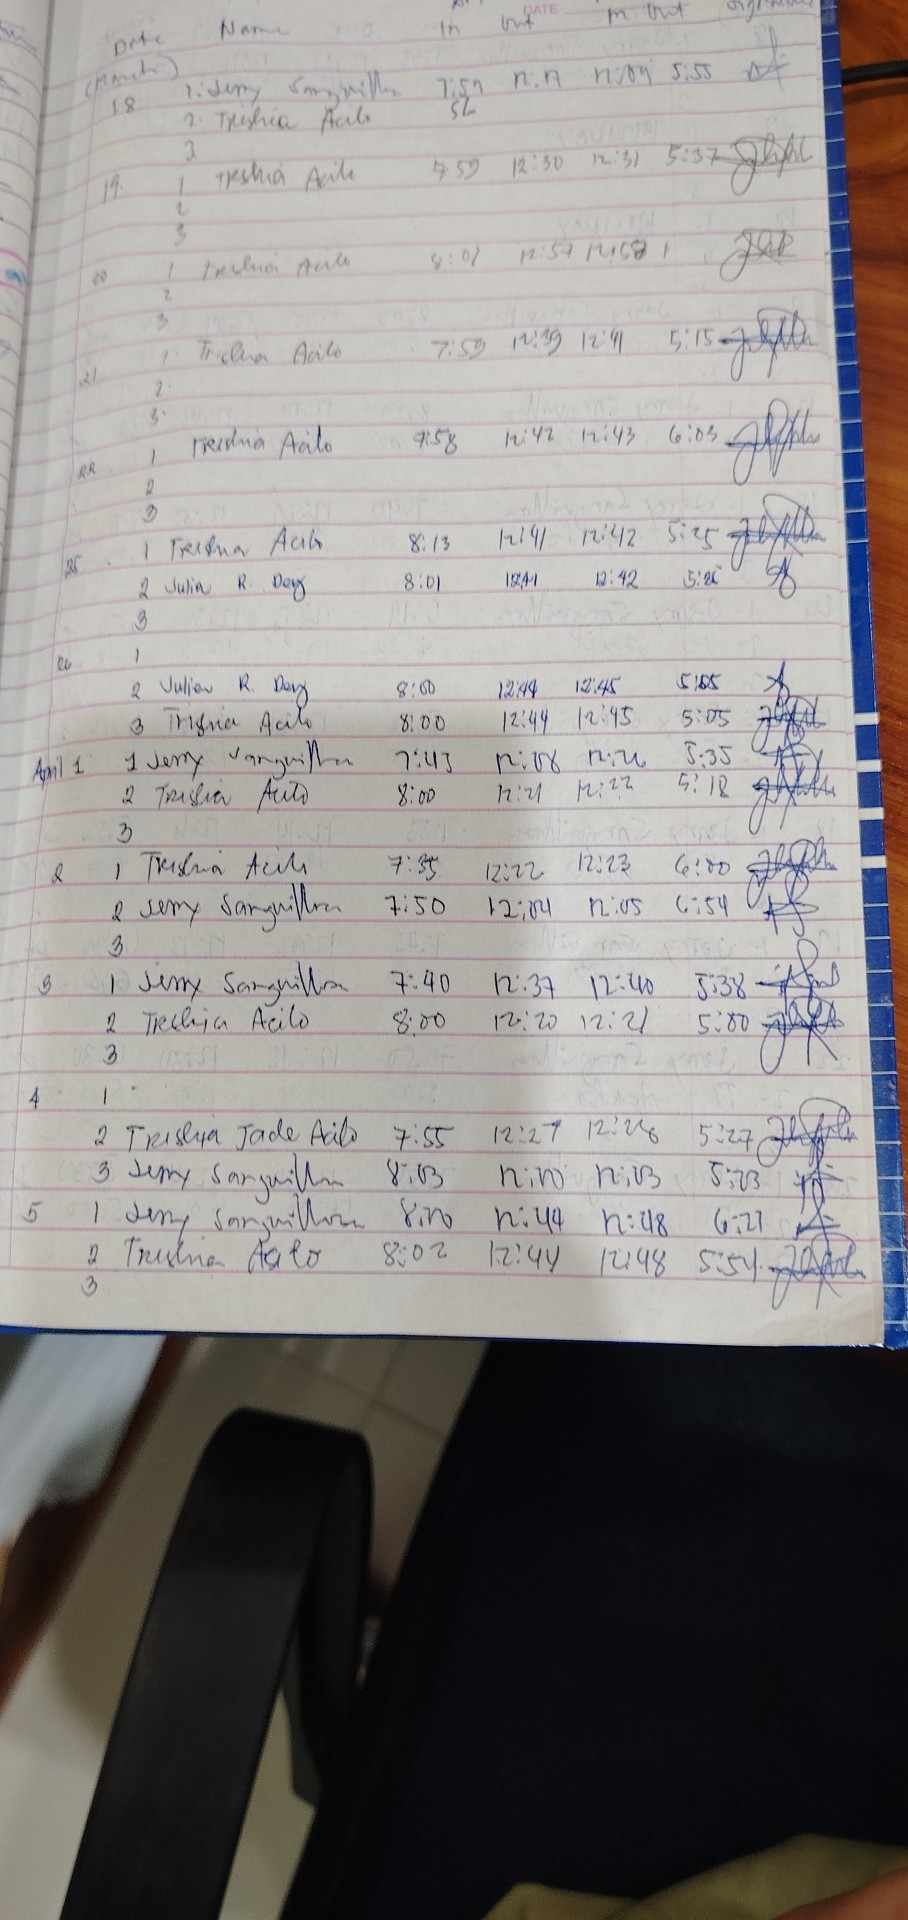 DATE
Date Name In Out In Out
(March)
18 1. Jerry Sanguilla 7:57 5:55
2. Treshia Acilo SL
3
19 1 Treshia Acilo 7:59 12:30 12:31 5:37
2
3
20 1 Treshia Acilo 8:07 12:57 12:58
2
3
21 1 Treshia Acilo 7:59 12:39 12:41 5:15
2
3
22 1 Treshia Acilo 7:58 12:42 12:43 6:03
2
3
25 1 Treshia Acilo 8:13 12:41 12:42 5:25
2 Julia R. Day 8:01 12:41 12:42 5:25
3
26 1
2 Julia R. Day 8:00 12:44 12:45 5:05
3 Treshia Acilo 8:00 12:44 12:45 5:05
April 1 1 Jerry Sanguilla 7:43 12:08 5:35
2 Treshia Acilo 8:00 12:21 12:22 5:18
3
2 1 Treshia Acilo 7:35 12:22 12:23 6:00
2 Jerry Sanguilla 7:50 12:04 12:05 6:54
3
3 1 Jerry Sanguilla 7:40 12:37 12:40 5:38
2 Treshia Acilo 8:00 12:20 12:21 5:00
3
4 1
2 Treshia Jade Acilo 7:55 12:27 12:28 5:27
3 Jerry Sanguilla 8:03 12:00 12:03 5:03
5 1 Jerry Sanguilla 8:00 12:44 12:48 6:21
2 Treshia Acilo 8:02 12:44 12:48 5:54
3